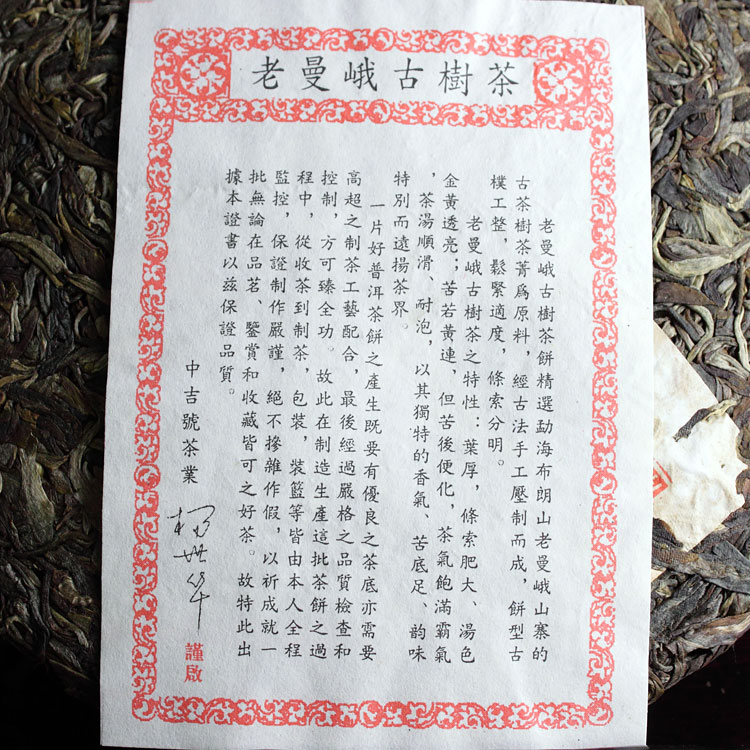 老曼峨古樹茶
老曼峨古樹茶餅精選勐海布朗山老曼峨山寨的
古茶樹茶菁爲原料，經古法手工壓制而成，餅型古
樸工整，鬆緊適度，條索分明。
老曼峨古樹茶之特性：葉厚，條索肥大、湯色
金黃透亮；苦若黃連，但苦後便化，茶氣飽滿霸氣
，茶湯順滑、耐泡，以其獨特的香氣、苦底足、韵味
特別而遠揚茶界。
一片好普洱茶餅之產生既要有優良之茶底亦需要
高超之制茶工藝配合，最後經過嚴格之品質檢查和
控制，方可臻全功。故此在制造生產這批茶餅之過
程中，從收茶到制茶，包裝，裝籃等皆由本人全程
監控，保證制作嚴謹，絕不摻雜作假，以祈成就一
批無論在品茗、鑒賞和收藏皆可之好茶。故特此出
據本證書以茲保證品質。
中吉號茶業
楊世華
謹啟